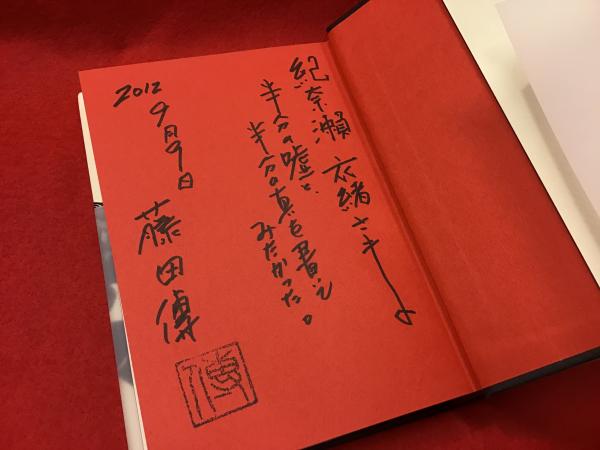 紀奈瀬 衣緒さま
半分の嘘と、
半分の真を書いて
みたかった。
2012
9月9日
藤田傳
傳